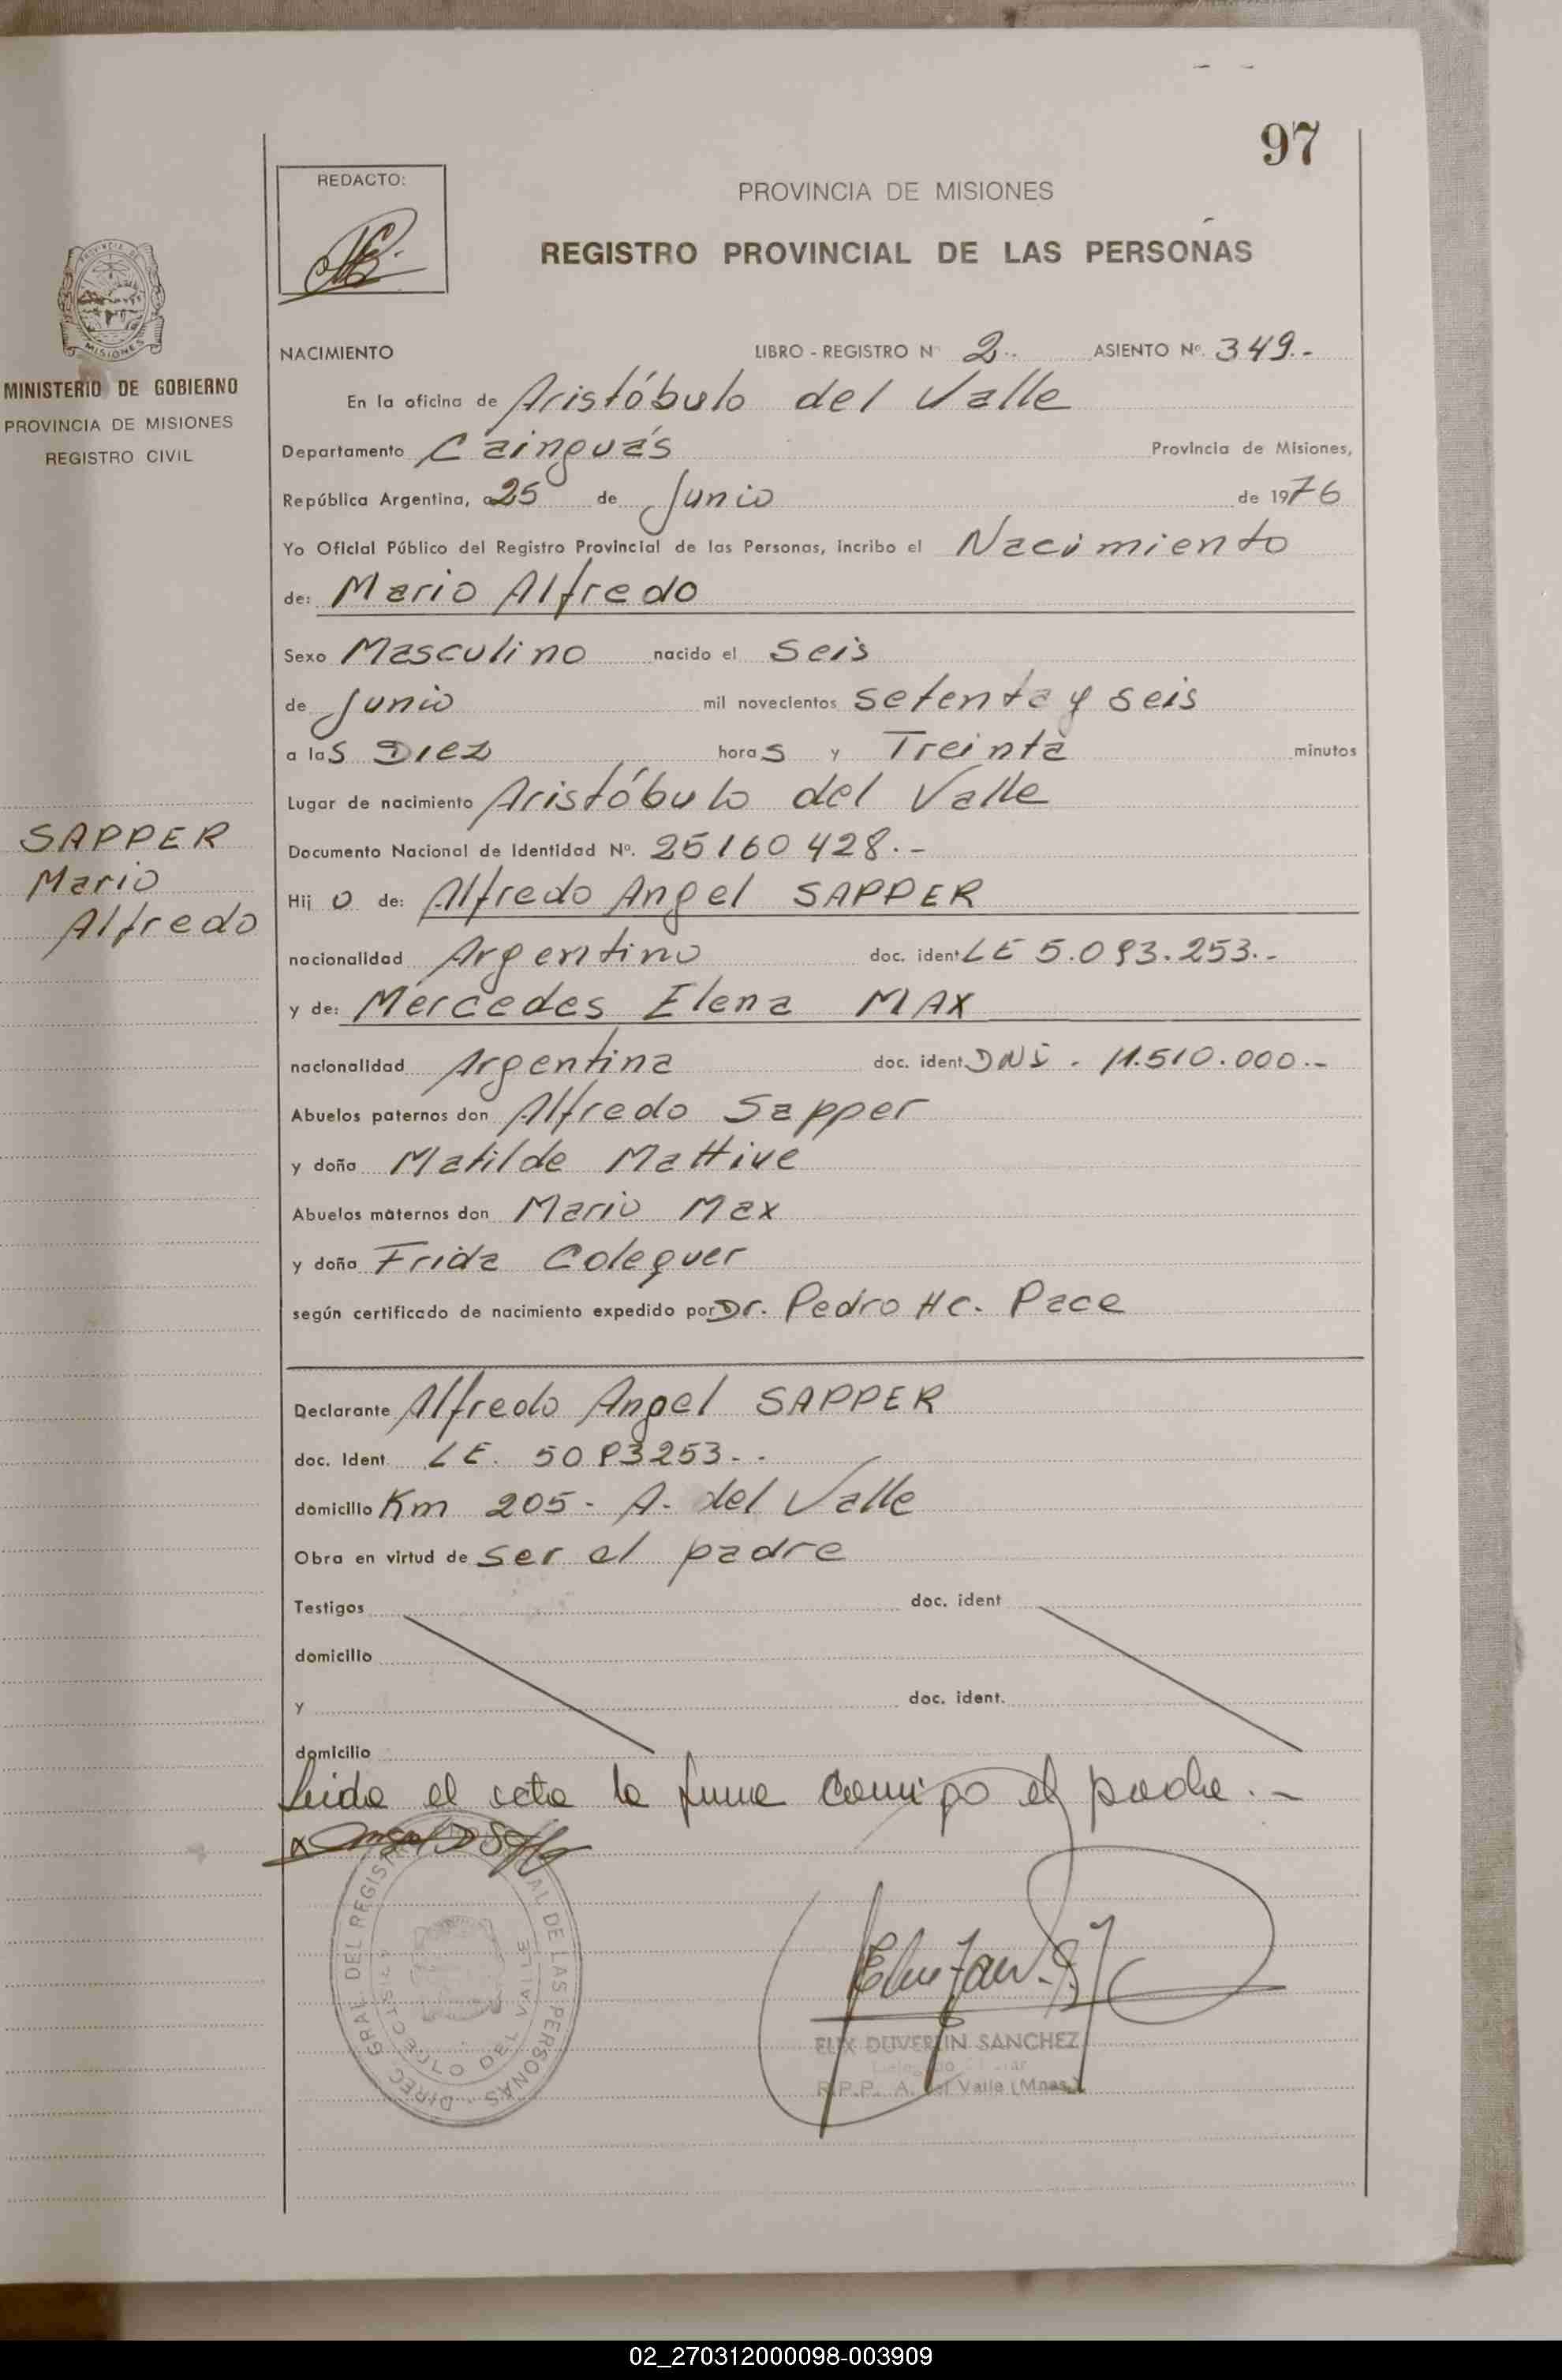 97
REDACTO:
PROVINCIA DE MISIONES
REGISTRO PROVINCIAL DE LAS PERSONAS
MISIONES
MINISTERIO DE GOBIERNO
PROVINCIA DE MISIONES
REGISTRO CIVIL
NACIMIENTO LIBRO - REGISTRO Nº 2.- ASIENTO Nº. 349.-
En la oficina de Aristóbulo del Valle
Departamento Cainguás Provincia de Misiones,
República Argentina, a 25 de Junio de 1976
Yo Oficial Público del Registro Provincial de las Personas, incribo el Nacimiento
de: Mario Alfredo
Sexo Masculino nacido el Seis
de Junio mil novecientos setenta y seis
a las Diez horas y Treinta minutos
Lugar de nacimiento Aristóbulo del Valle
Documento Nacional de Identidad Nº. 25160428.-
SAPPER
Mario
Alfredo
Hijo de: Alfredo Angel SAPPER
nacionalidad Argentino doc. ident LE 5.093.253.-
y de: Mercedes Elena MAX
nacionalidad Argentina doc. ident. DNI - 11.510.000.-
Abuelos paternos don Alfredo Sapper
y doña Matilde Mattive
Abuelos maternos don Mario Max
y doña Frida Colequer
según certificado de nacimiento expedido por Dr. Pedro Hc. Pace
Declarante Alfredo Angel SAPPER
doc. Ident LE. 5093253.-
domicilio Km 205 - A. del Valle
Obra en virtud de ser el padre
Testigos doc. ident
domicilio
y doc. ident.
domicilio
Leida el acta la firma conmigo el padre.-
DIREC. GRAL. DEL REGISTRO DE LAS PERSONAS
DEL VALLE
ELIX DUVERLIN SANCHEZ
R.P.P. A. del Valle (Mnes.)
02_270312000098-003909